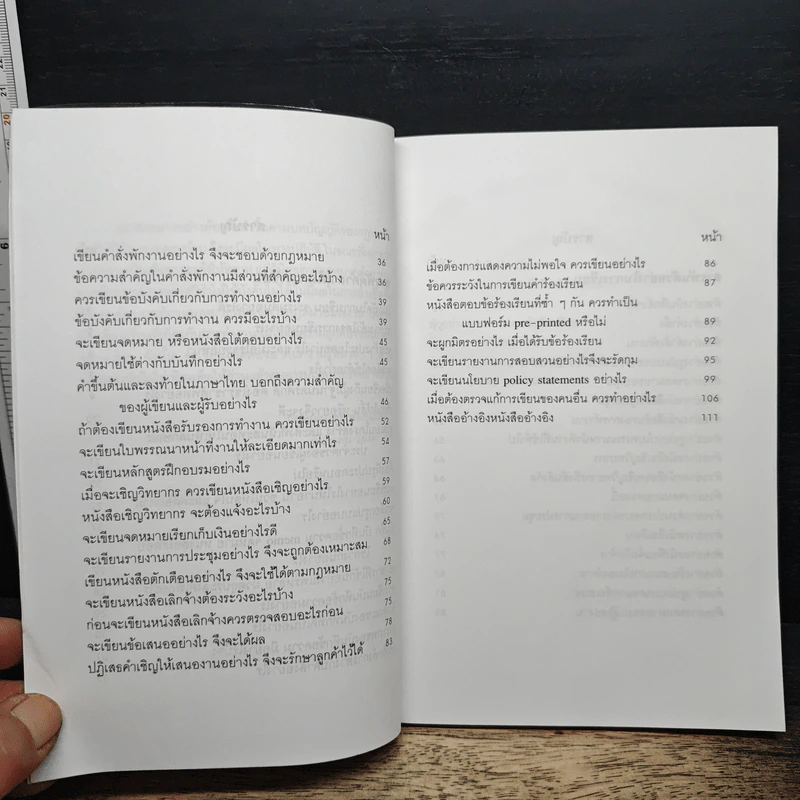 หน้า
เขียนคำสั่งพักงานอย่างไร จึงจะชอบด้วยกฎหมาย 36
ข้อความสำคัญในคำสั่งพักงานมีส่วนที่สำคัญอะไรบ้าง 36
ควรเขียนข้อบังคับเกี่ยวกับการทำงานอย่างไร 39
ข้อบังคับเกี่ยวกับการทำงาน ควรมีอะไรบ้าง 39
จะเขียนจดหมาย หรือหนังสือโต้ตอบอย่างไร 45
จดหมายใช้ต่างกับบันทึกอย่างไร 45
คำขึ้นต้นและลงท้ายในภาษาไทย บอกถึงความสำคัญ
ของผู้เขียนและผู้รับอย่างไร 46
ถ้าต้องเขียนหนังสือรับรองการทำงาน ควรเขียนอย่างไร 52
จะเขียนใบพรรณนาหน้าที่งานให้ละเอียดมากเท่าไร 54
จะเขียนหลักสูตรฝึกอบรมอย่างไร 57
เมื่อจะเชิญวิทยากร ควรเขียนหนังสือเชิญอย่างไร 59
หนังสือเชิญวิทยากร จะต้องแจ้งอะไรบ้าง 60
จะเขียนจดหมายเรียกเก็บเงินอย่างไรดี 65
จะเขียนรายงานการประชุมอย่างไร จึงจะถูกต้องเหมาะสม 68
เขียนหนังสือตักเตือนอย่างไร จึงจะใช้ได้ตามกฎหมาย 72
จะเขียนหนังสือเลิกจ้างต้องระวังอะไรบ้าง 75
ก่อนจะเขียนหนังสือเลิกจ้างควรตรวจสอบอะไรก่อน 75
จะเขียนข้อเสนออย่างไร จึงจะได้ผล 78
ปฏิเสธคำเชิญให้เสนองานอย่างไร จึงจะรักษาลูกค้าไว้ได้ 83
หน้า
เมื่อต้องการแสดงความไม่พอใจ ควรเขียนอย่างไร 86
ข้อควรระวังในการเขียนคำร้องเรียน 87
หนังสือตอบข้อร้องเรียนที่ซ้ำ ๆ กัน ควรทำเป็น
แบบฟอร์ม pre-printed หรือไม่ 89
จะผูกมิตรอย่างไร เมื่อได้รับข้อร้องเรียน 92
จะเขียนรายงานการสอบสวนอย่างไรจึงจะรัดกุม 95
จะเขียนนโยบาย policy statements อย่างไร 99
เมื่อต้องตรวจแก้การเขียนของคนอื่น ควรทำอย่างไร 106
หนังสืออ้างอิงหนังสืออ้างอิง 111